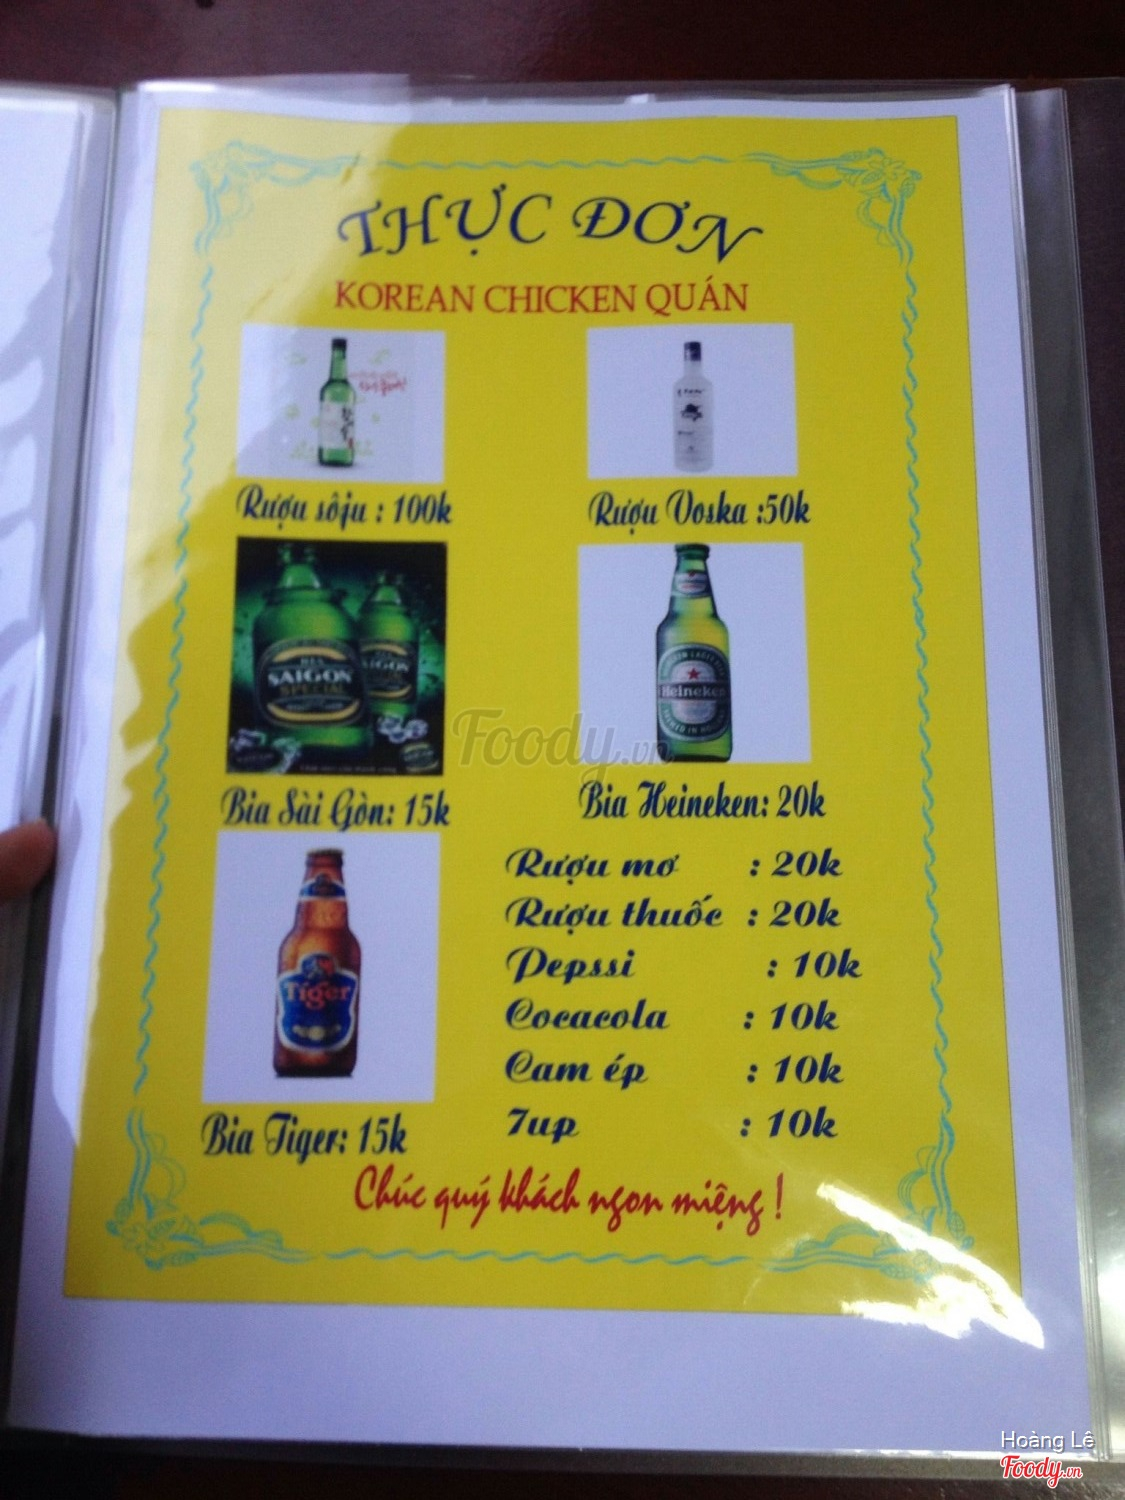 THỰC ĐƠN
KOREAN CHICKEN QUÁN
Rượu sôju : 100k
Rượu Voska :50k
SAIGON
SPECIAL
SAIGON
Heineken
Bia Sài Gòn: 15k
Bia Heineken: 20k
Foody.vn
Rượu mơ : 20k
Rượu thuốc : 20k
Pepssi : 10k
Cocacola : 10k
Cam ép : 10k
7up : 10k
Tiger
Bia Tiger: 15k
Chúc quý khách ngon miệng !
Hoàng Lê
Foody.vn